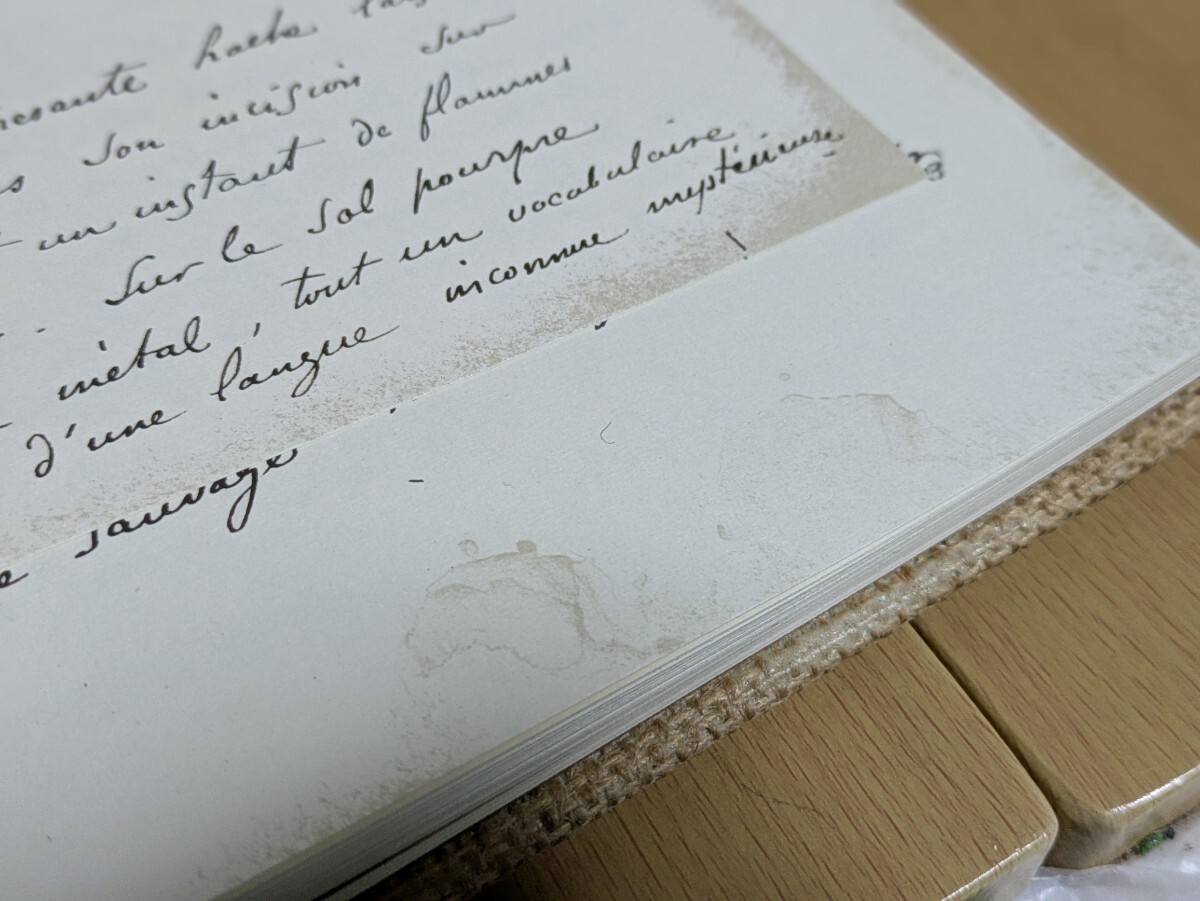 hache
son incision sur
un instant de flammes
. Sur le sol pourpre
métal, tout un vocabulaire
d'une langue inconnue mystérieuse
e sauvage